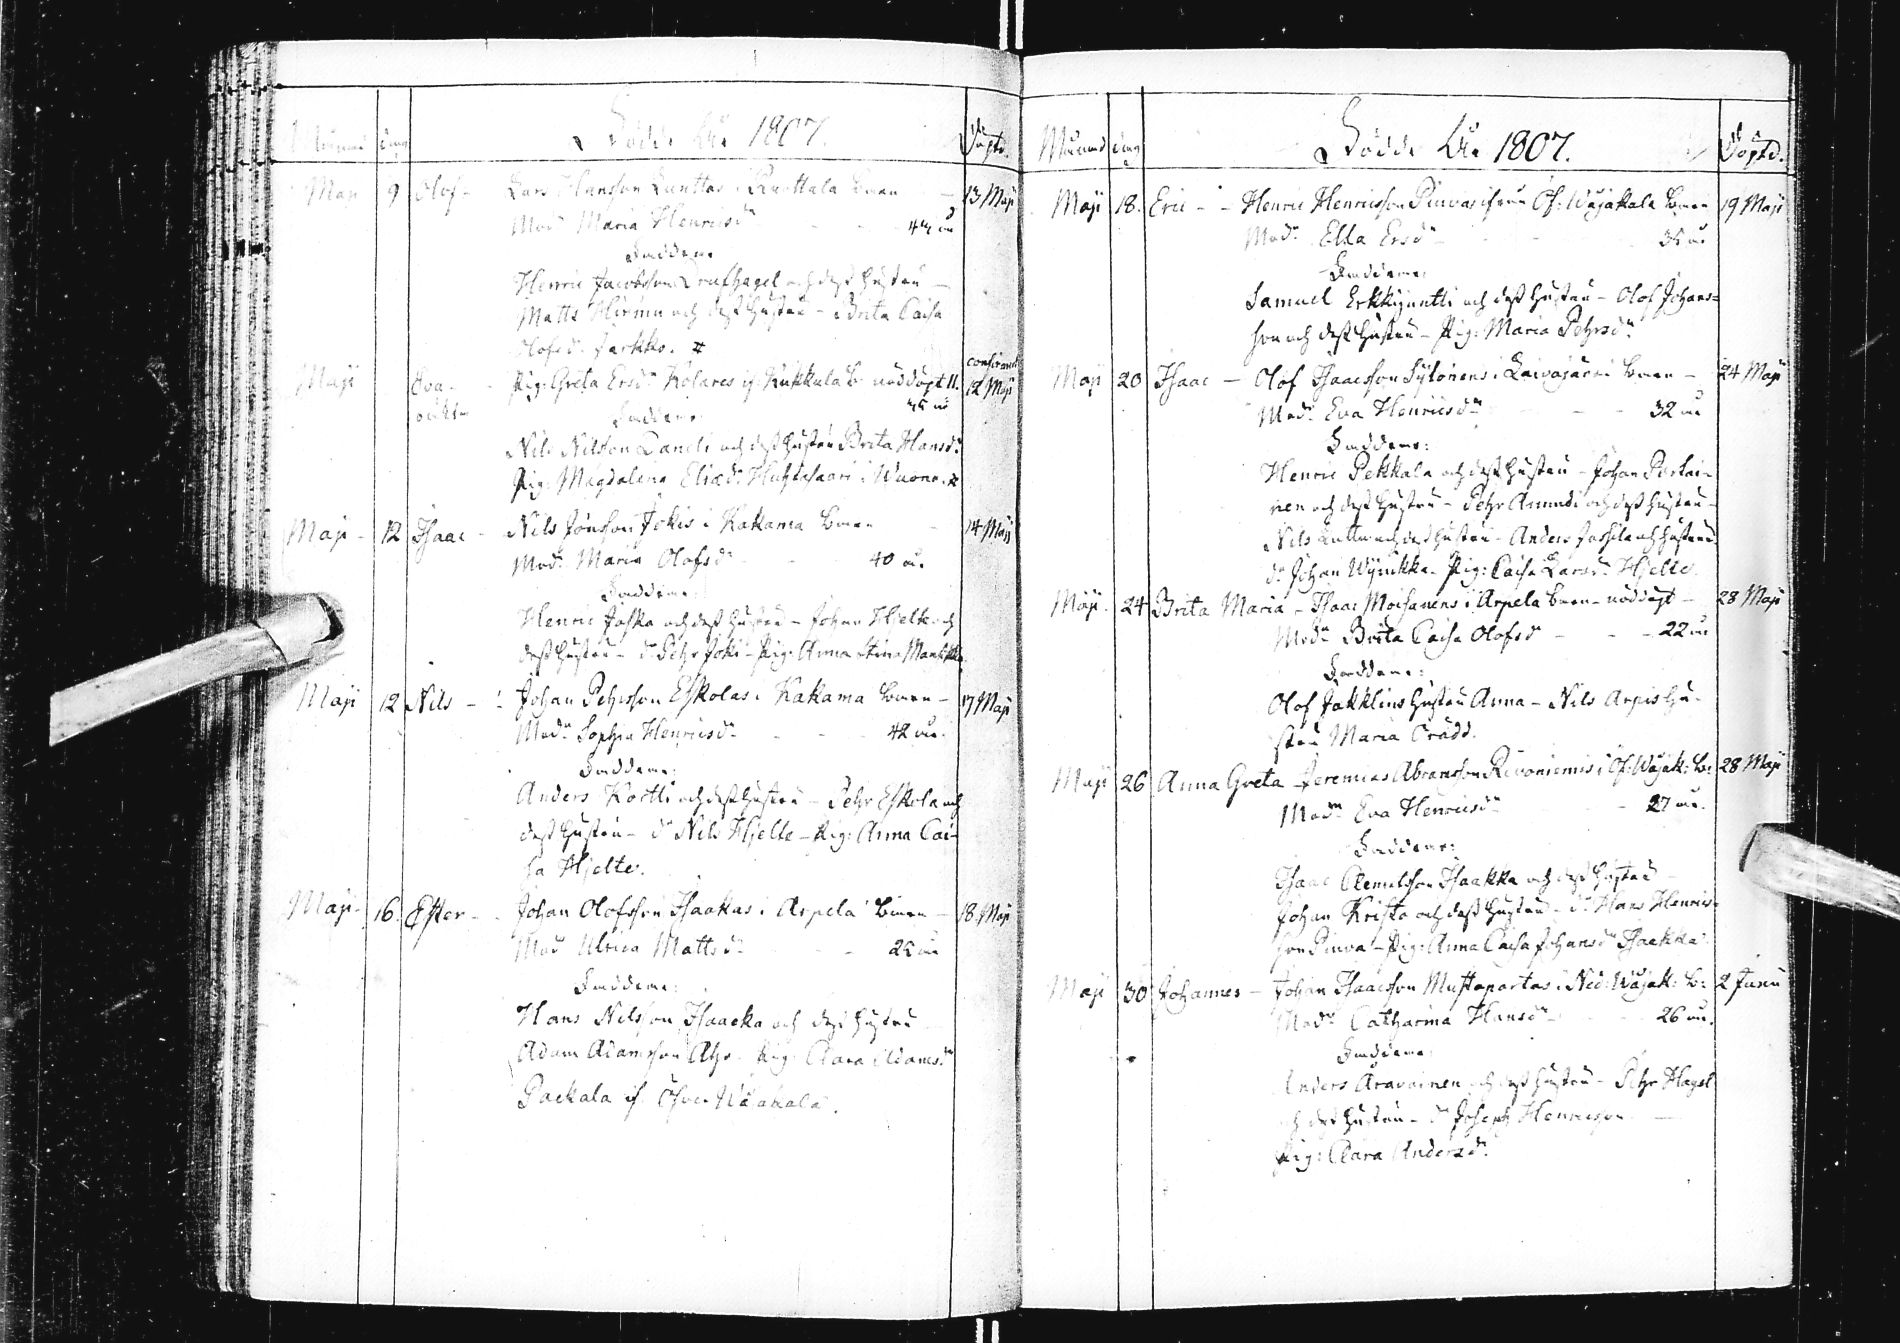 Månad dag Födde Åhr 1807. Döpte.
Maji 9 Olof - Lars Hansson Lunttas i Ruottala barn - 13 Maji
Modr Maria Henricsdr - - 44 år
Faddrar
Henric Jacobsson och dess hustru -
Matts och dess hustru - Brita Caisa
Olofsd. Parkko.
Maji Eva - Pig: Greta Ersdr Kolares ifr. Kukkula b. nöddöpt 11. confirmerad 12 Maji
oächta
Faddrar:
Nils Nilsson Laneli och dess hustru Brita Hansdr
Pig: Magdalena Eliædr Huhtasaari i Wuono.
Maji - 12 Isaac - Nils Jönsson Jokis i Kakama barn - 14 Maji
Modr Maria Olofsdr - - 40 år.
Faddrar:
Henric Jaska och dess hustru - Johan Hjelte och
dess hustru - dr Pehr Joki - Pig: Anna Stina
Maji 12 Nils - Johan Pehrsson Eskolas i Kakama barn - 17 Maji
Modr Sophia Henricsdr - - 42 år.
Faddrar:
Anders Kortti och dess hustru - Pehr Eskola och
dess hustru - dr Nils Hjelte - Pig: Anna Cai-
sa Hjelte.
Maji - 16. Ester - Johan Olofsson Isaakas i Arpela barn - 18 Maji
Mod Ulrica Mattsdr - 22 år
Faddrar:
Hans Nilsson Isaacka och dess hustru -
Adam Adamsson Ahr - Pig: Clara Adamsdr
Packala if. Öfver Wojakala.
Månad dag Födde Åhr 1807. Döpte.
Maji 18. Eric - - Henric Henricsson Pinvas ifrån Öf: Wojakala barn 19 Maji
Modr Ella Ersdr - - 35 år.
Faddrar:
Samuel Erkkijuntti och dess hustru - Olof Johans-
son och dess hustru - Pig: Maria Pehrsdr
Maji 20 Isaac - Olof Isaacsson Sytönens i Laivajärvi barn - 24 Maji
Modr Eva Henricsdr - - 32 år
Faddrar:
Henric Pekkala och dess hustru - Johan Portai-
nen och dess hustru - Pehr Anundi och dess hustru -
Nils Luttu och dess hustru - Anders och hustru
dr Johan Wynikka - Pig: Caisa Larsdr Hjelte.
Maji - 24 Brita Maria - Isaac Moisanens i Arpela barn - nöddöpt - 28 Maji
Modr Brita Caisa Olofsdr - - - 22 år
Faddrar:
Olof Jakklins hustru Anna - Nils Arpis hu-
stru Maria
Maji 26 Anna Greta - Jeremias Abramsson Kivoniemis i Öf: Wojak: b: 28 Maji
Modr Eva Henricsdr - 27 år.
Faddrar:
Isaac Clemetsson Isaakka och dess hustru -
Johan Krista och dess hustru - dr Hans Henrics-
son Pinva - Pig: Anna Caisa Johansdr Isackka
Maji 30 Johannes - Johan Isaacsson Mustaparta i Ned: Wojak: b: 2 Junii
Modr Catharina Hansdr - - 26 år.
Faddrar:
Anders Aravainen och dess hustru - Pehr Hagel
och dess hustru - dr Joseph Henricsson -
Pig: Clara Andersdr.